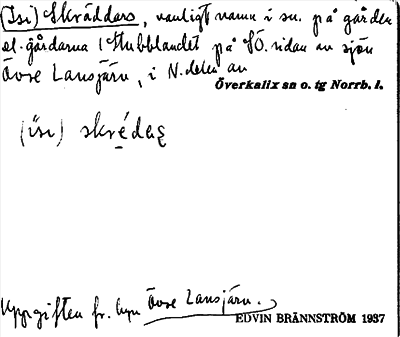 (Isi) Skräddars, vanligt namn i sn. på gården
el. gårdarna i Stubblandet på SÖ. sidan av sjön
Övre Lansjärv, i N. delen av
Överkalix sn o. tg Norrb. l.
(isi) skrédaʂ
Uppgiften fr. byn Övre Lansjärv.
EDVIN BRÄNNSTRÖM 1937